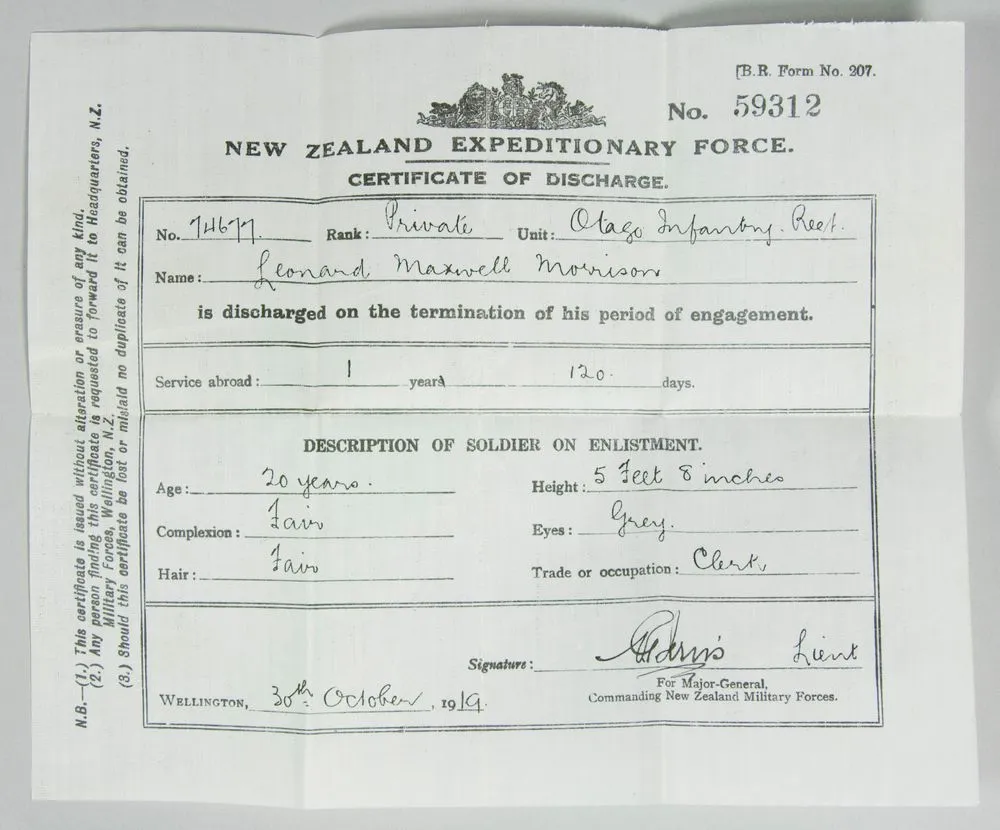 [B.R. Form No. 207.
No. 59312
NEW ZEALAND EXPEDITIONARY FORCE.
CERTIFICATE OF DISCHARGE.
No. 74677. Rank: Private Unit: Otago Infantry. Reet.
Name: Leonard Maxwell Morrison
is discharged on the termination of his period of engagement.
Service abroad: 1 years 120. days.
DESCRIPTION OF SOLDIER ON ENLISTMENT.
Age: 20 years. Height: 5 Feet 8 inches
Complexion: Fair Eyes: Grey.
Hair: Fair Trade or occupation: Clerk
Signature: Lieut
For Major-General,
Commanding New Zealand Military Forces.
WELLINGTON, 30th October, 1919.
N.B.—(1.) This certificate is issued without alteration or erasure of any kind.
(2.) Any person finding this certificate is requested to forward it to Headquarters, N.Z.
Military Forces, Wellington, N.Z.
(3.) Should this certificate be lost or mislaid no duplicate of it can be obtained.